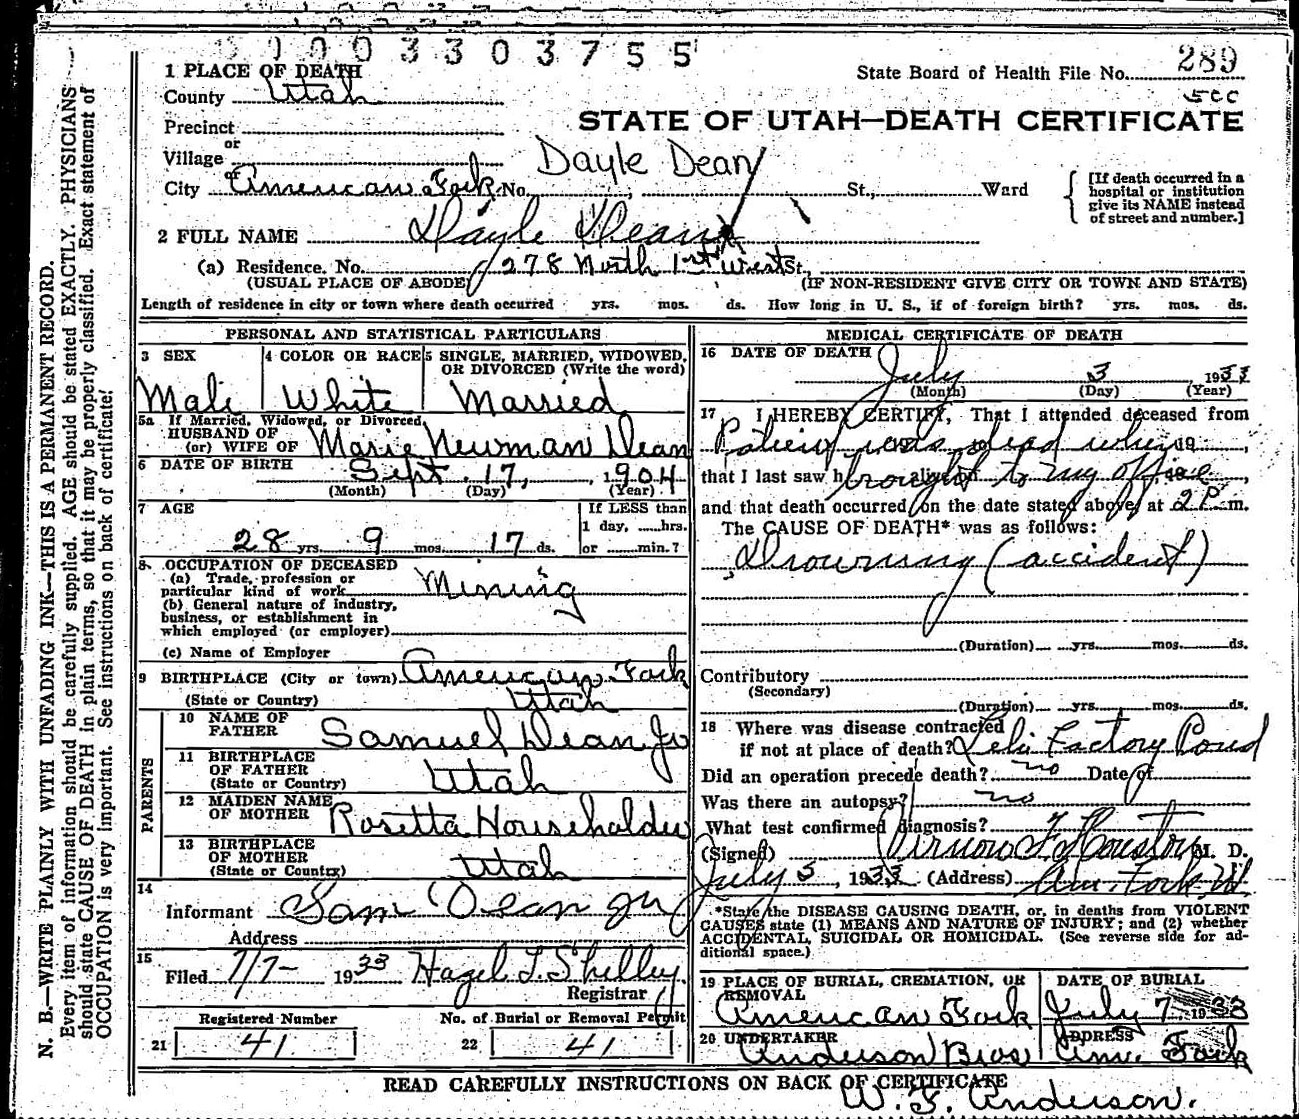 0003303755
289
1 PLACE OF DEATH
State Board of Health File No.
County Utah
Precinct
STATE OF UTAH—DEATH CERTIFICATE
or
Village
Dayle Dean
or
City American Fork No. , St., Ward
[If death occurred in a hospital or institution give its NAME instead of street and number.]
2 FULL NAME Dayle Dean
(a) Residence. No. 278 North 1st West St.,
(USUAL PLACE OF ABODE) (IF NON-RESIDENT GIVE CITY OR TOWN AND STATE)
Length of residence in city or town where death occurred yrs. mos. ds. How long in U. S., if of foreign birth? yrs. mos. ds.
PERSONAL AND STATISTICAL PARTICULARS
3 SEX 4 COLOR OR RACE 5 SINGLE, MARRIED, WIDOWED, OR DIVORCED (Write the word)
Male White Married
5a If Married, Widowed, or Divorced
HUSBAND OF
(or) WIFE OF Marie Newman Dean
6 DATE OF BIRTH Sept. 17, 1904
(Month) (Day) (Year)
7 AGE If LESS than
1 day, hrs.
28 yrs. 9 mos. 17 ds. or min.?
8 OCCUPATION OF DECEASED
(a) Trade, profession or
particular kind of work Mining
(b) General nature of industry,
business, or establishment in
which employed (or employer)
(c) Name of Employer
9 BIRTHPLACE (City or town) American Fork
(State or Country) Utah
PARENTS
10 NAME OF
FATHER Samuel Dean Jr
11 BIRTHPLACE
OF FATHER
(State or Country) Utah
12 MAIDEN NAME
OF MOTHER Rosetta Householder
13 BIRTHPLACE
OF MOTHER
(State or Country) Utah
14
Informant Sam Dean Jr
Address
15
Filed 7/7- 1933 Hazel L. Shelley
Registrar
Registered Number No. of Burial or Removal Permit
21 41 22 41
MEDICAL CERTIFICATE OF DEATH
16 DATE OF DEATH July 3 1933
(Month) (Day) (Year)
17 I HEREBY CERTIFY, That I attended deceased from
Patient was dead when 19 ,
that I last saw h alive on brought to my office
and that death occurred on the date stated above, at 2 P. m.
The CAUSE OF DEATH* was as follows:
Drowning (accident)
(Duration) yrs. mos. ds.
Contributory
(Secondary)
(Duration) yrs. mos. ds.
18 Where was disease contracted
if not at place of death? Lehi Factory Pond
Did an operation precede death? no Date of
Was there an autopsy? no
What test confirmed diagnosis?
(Signed) Vernow F. Houston M. D.
July 5, 1933 (Address) Am. Fork U
*State the DISEASE CAUSING DEATH, or, in deaths from VIOLENT
CAUSES state (1) MEANS AND NATURE OF INJURY; and (2) whether
ACCIDENTAL, SUICIDAL OR HOMICIDAL. (See reverse side for ad-
ditional space.)
19 PLACE OF BURIAL, CREMATION, OR REMOVAL DATE OF BURIAL
American Fork July 7 1933
20 UNDERTAKER ADDRESS
Anderson Bros Am. Fork
READ CAREFULLY INSTRUCTIONS ON BACK OF CERTIFICATE
W. F. Anderson.
N. B.—WRITE PLAINLY WITH UNFADING INK—THIS IS A PERMANENT RECORD.
Every item of information should be carefully supplied. AGE should be stated EXACTLY. PHYSICIANS
should state CAUSE OF DEATH in plain terms, so that it may be properly classified. Exact statement of
OCCUPATION is very important. See instructions on back of certificate.